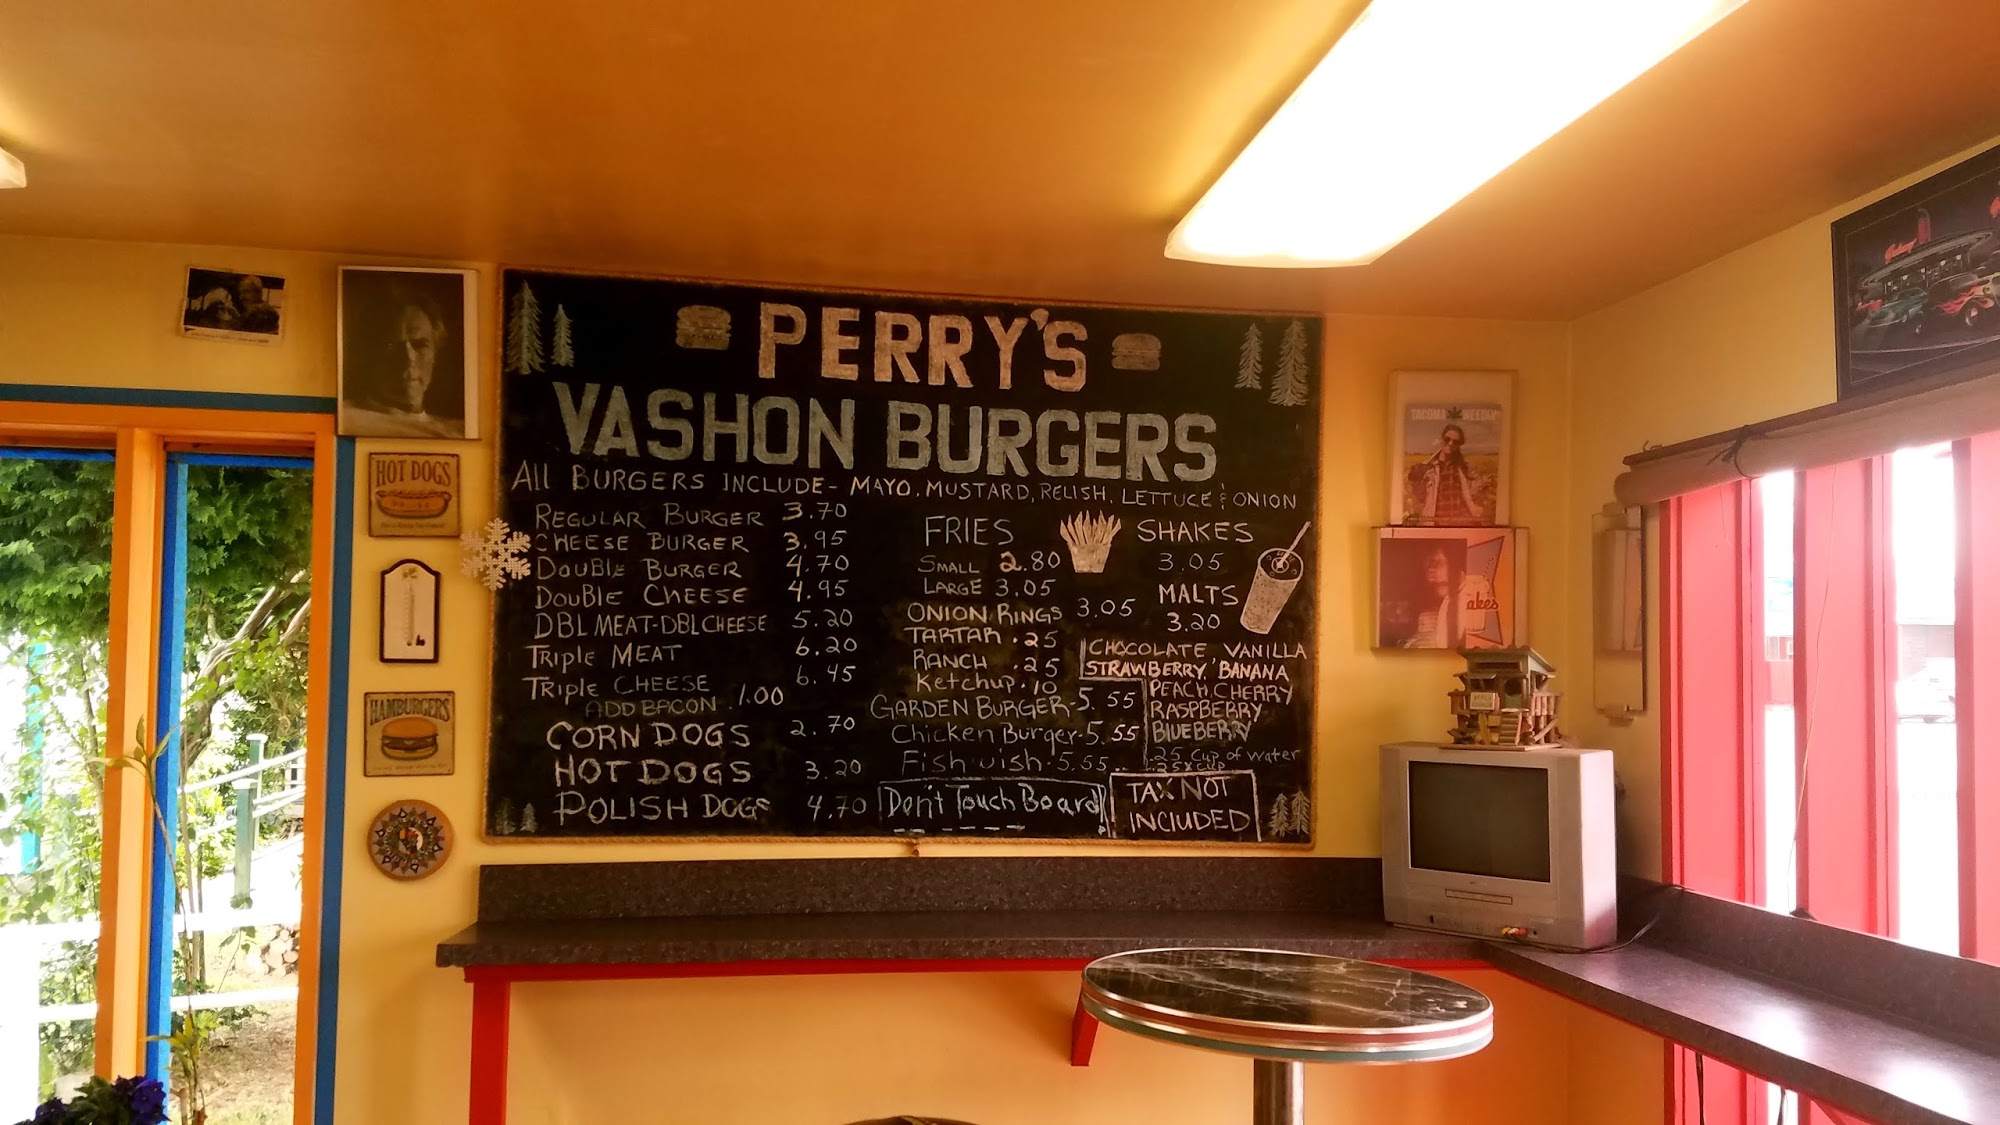 PERRY'S
VASHON BURGERS
All BURGERS INCLUDE- MAYO, MUSTARD, RELISH, LETTUCE & ONION
REGULAR BURGER 3.70
CHEESE BURGER 3.95
DOUBLE BURGER 4.70
DOUBLE CHEESE 4.95
DBL MEAT-DBL CHEESE 5.20
TRIPLE MEAT 6.20
TRIPLE CHEESE 6.45
ADD BACON 1.00
CORN DOGS 2.70
HOT DOGS 3.20
POLISH DOGS 4.70
FRIES
SMALL 2.80
LARGE 3.05
ONION RINGS 3.05
TARTAR .25
RANCH .25
Ketchup .10
GARDEN BURGER-5.55
Chicken Burger-5.55
Fishwish.5.55
Don't Touch Board
SHAKES
3.05
MALTS
3.20
CHOCOLATE VANILLA
STRAWBERRY, BANANA
PEACH, CHERRY
RASPBERRY
BLUEBERRY
.25 Cup of water
TAX NOT
INCLUDED
HOT DOGS
HAMBURGERS
TACOMA WEEKLY
akes